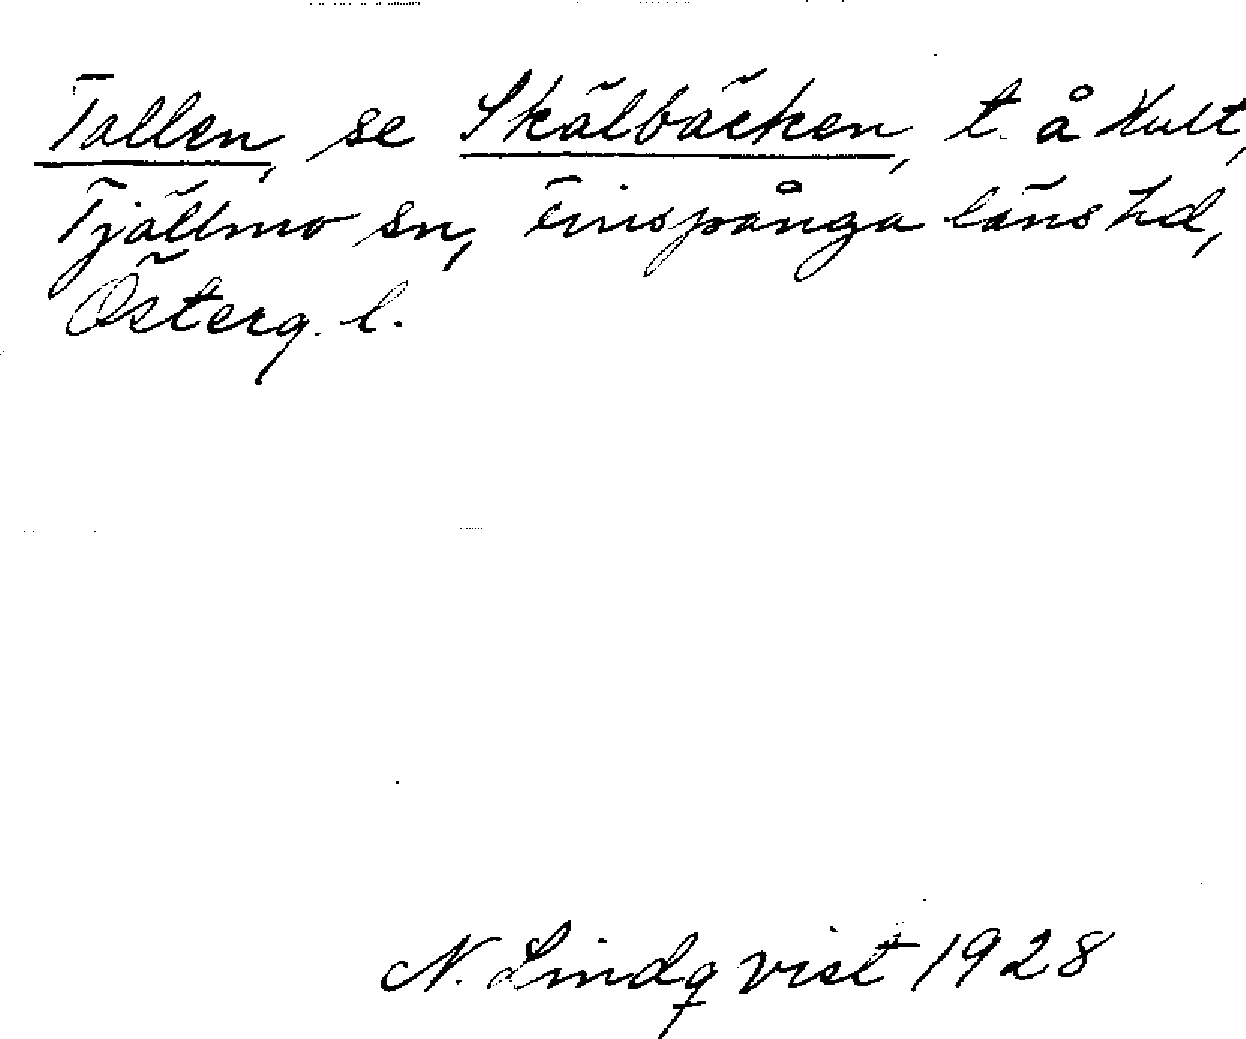 Tallen, se Skälbäcken, t. å Hult,
Tjällmo sn, Finspånga läns hd,
Österg. l.
N. Lindqvist 1928